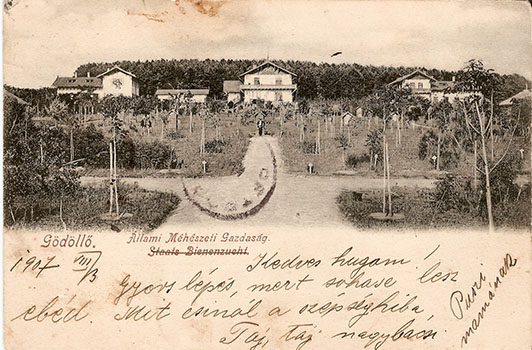 Gödöllő.
Állami Méhészeti Gazdaság.
Staats Bienenzucht.
1907 VIII/3
Kedves hugam!
Gyors lépés, mert sohase lesz
ebéd. Mit csinál a szépséghiba,
Taj, taj nagybacsi
Puszi
mamának